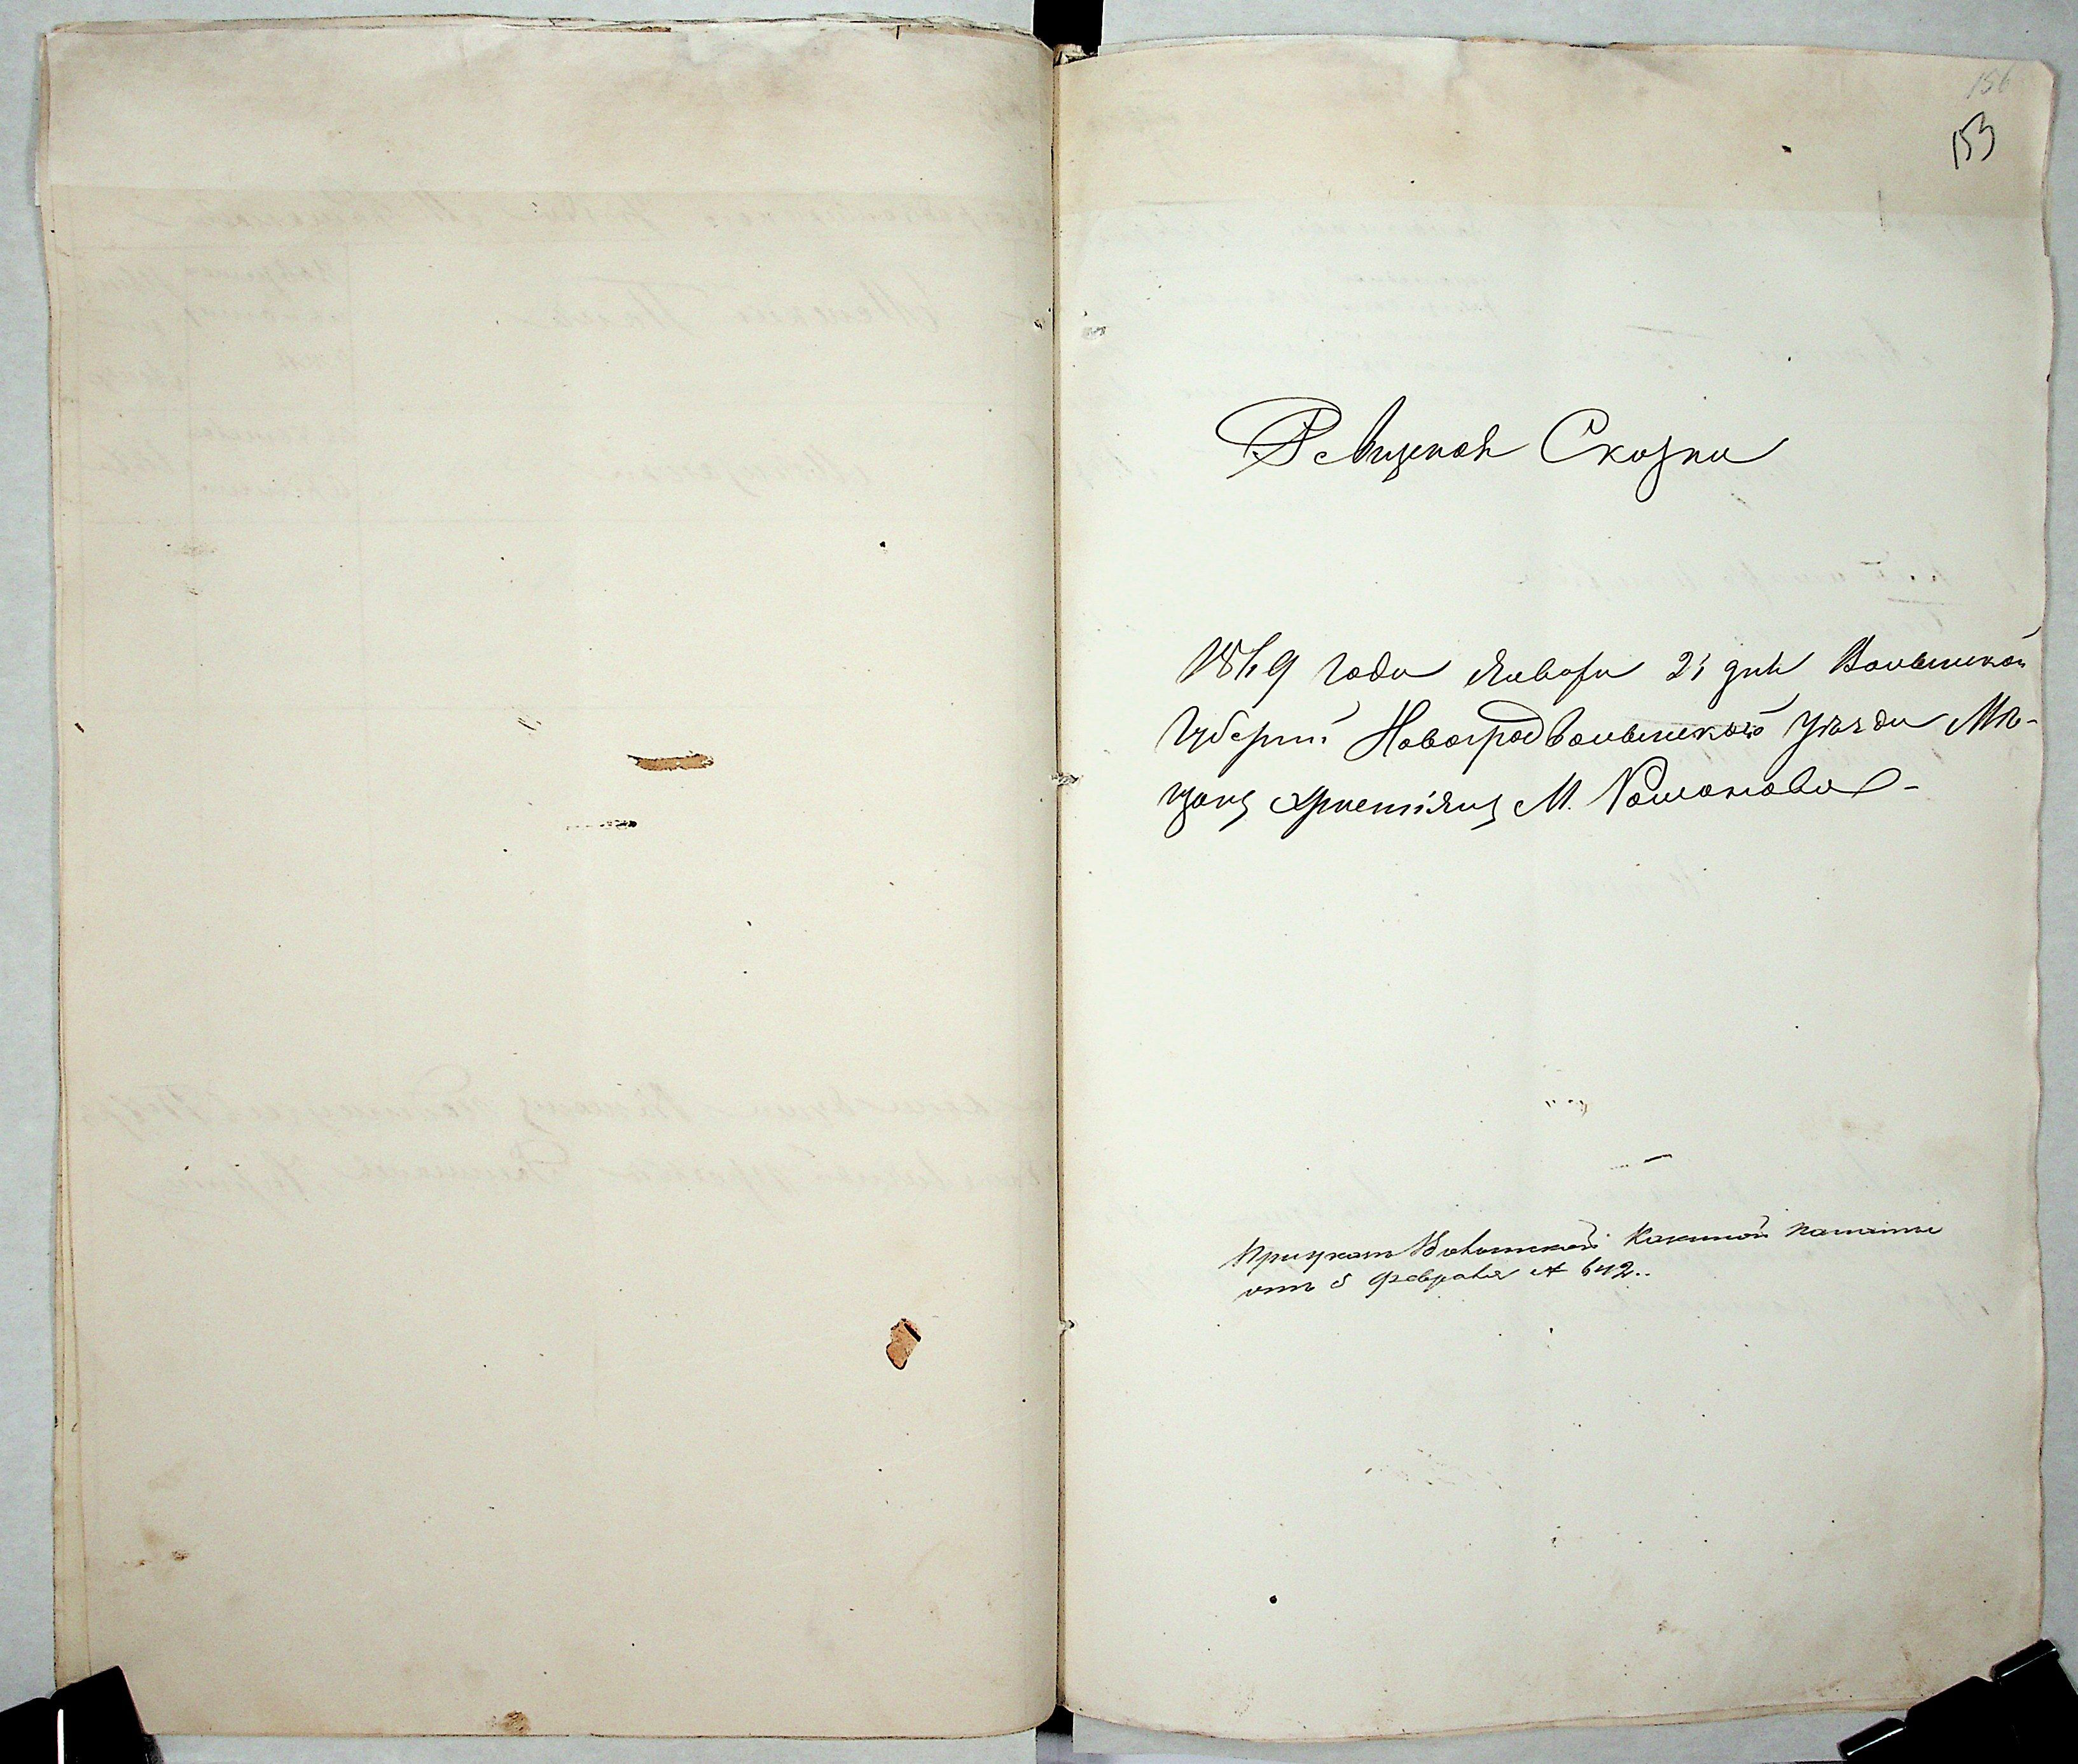 156
153
Ревизкая Сказка
1869 года Января 21 дня Волынской
Губернии Новоградволынского уезда Мѣ-
щанъ христіянъ М.
Приуказъ Волынской Казенной палаты
отъ 5 февраля № 642..